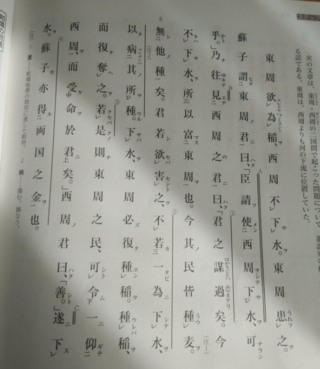 次の文章は、東周・西周の二国間で起こった問題について
る話である。東周は、西周よりも河の下流に位置していた。
東周欲為稲、西周不下水。東周患之。
蘇子謂東周君曰、「臣請使西周下水、可
乎。」乃往見西周之君曰、「君之謀過矣。今
不下水、所以富東周也。今其民皆種麦、
無他種矣。君若欲害之、不若一為下水、
以病其所種。下水、東周必復種稲。種稲、
而復奪之。若是、則東周之民、可令一仰
西周、而受命於君矣。」西周君曰、「善。」遂下
水。蘇子亦得両国之金也。